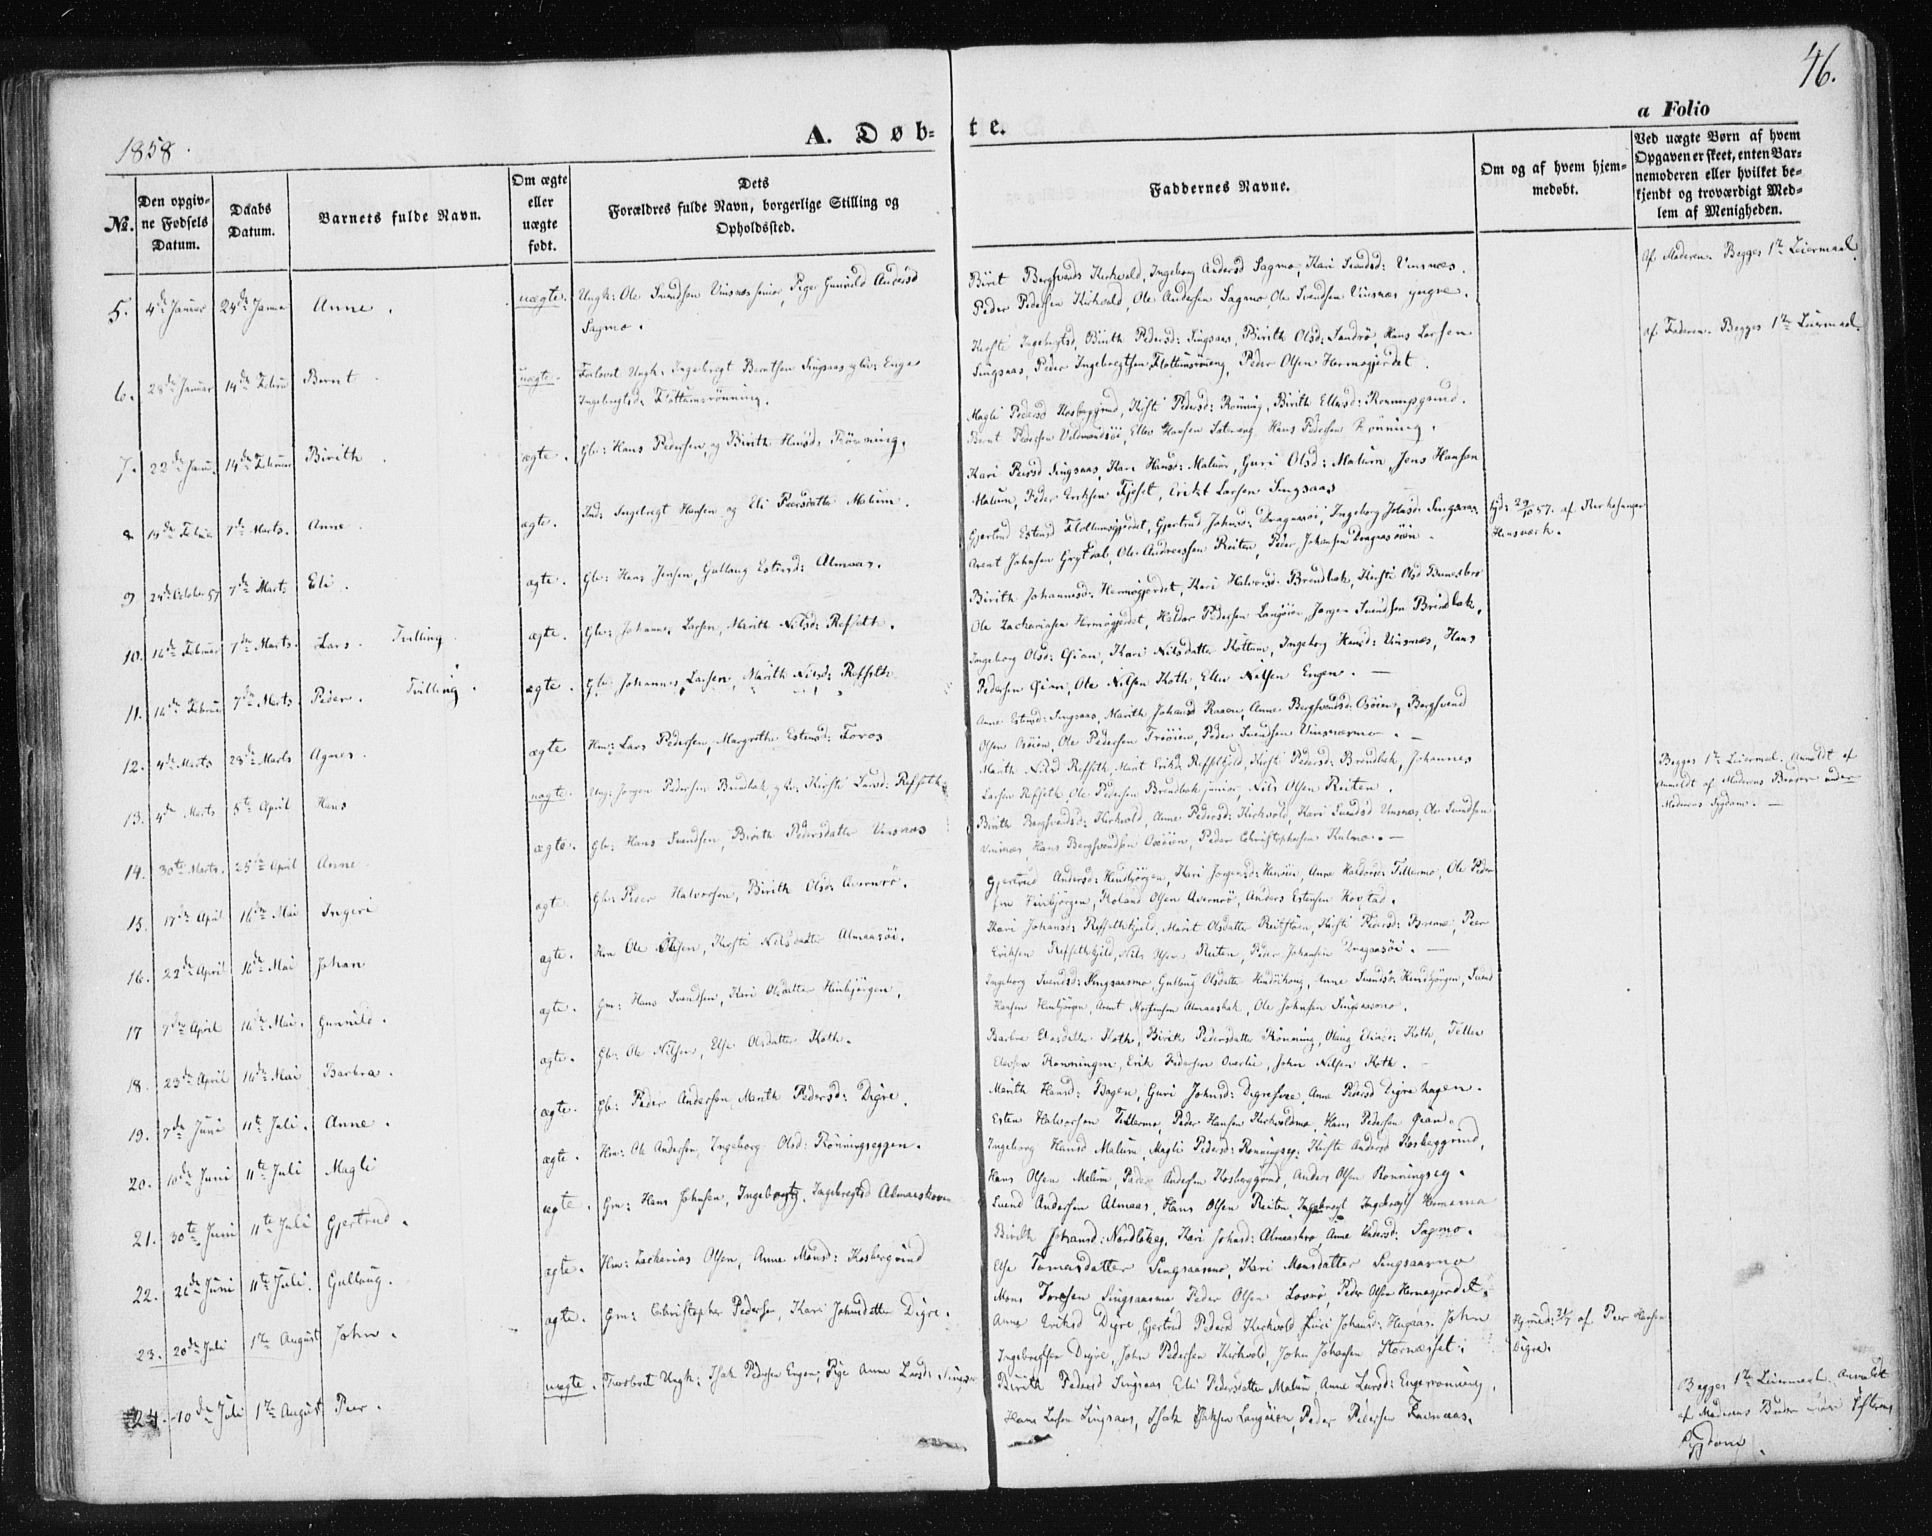 46.
1858.
A. Døb-
te.
a Folio
No.
Den opgiv-
ne Fødsels
Datum.
Daabs
Datum.
Barnets fulde Navn.
Om ægte
eller
uægte
født.
Dets
Forældres fulde Navn, borgerlige Stilling og
Opholdssted.
Faddernes Navne.
Om og af hvem hjem-
medøbt.
Ved uægte Børn af hvem
Opgaven er skeet, enten Bar-
nemoderen eller hvilket be-
kjendt og troværdigt Med-
lem af Menigheden.
5. 4de Januar 24de Janua Anne. uægte. Ungk: Ole Svendsen Vinsnes senior, Pige Gunild Andersd
Sagmo.
Birit Bergsvends Kirkvold, Ingeborg Andersd Sagmo, Kari Svendsd: Vinsnes.
Peder Pedersen Kirkvold, Ole Andersen Sagmo, Ole Svendsen Vinsnes yngre.
Af Moderen. Begges 1te Leiermaal.
6. 28de Januar 14de Febru Bernt uægte. Forlovet Ungk: Ingebrigt Berntsen Singsaas
Ingebrigtsd: Flottumsrönning.
Kirsti Ingebrigtsd, Birith Pedersd: Singsaas, Birith Olsd: Sandrö, Hans Larsen
Singsaas, Peder Ingebrigtsen Flottumsrönning, Peder Olsen Hermogjerdet.
af Faderen. Begges 1te Leiermaal.
7. 22de Janu. 14de Februar Birith ægte. Gbr: Hans Pedersen, og Birith Hansd: Rönning.
Magli Pedersd Kosberggrind, Kirsti Pedersd: Rönning, Birith Ellevsd: Rönningsgrind.
Bernt Pedersen, Ellev Hansen, Hans Pedersen Rönning.
8 19de Febru 7de Marts. Anne ægte. Ingebrigt Hansen og Eli Peersdatter Malum.
Kari Peersd Singsaas, Kari Hansd: Malum, Guri Olsd: Malum, Jens Hansen
Malum, Peder Eriksen Fjeset, Erik Larsen Singsaas
9 24de October 57 7de Marts Eli. ægte. Gbr: Hans Jensen, Gullaug Estensd: Almaas.
Gjertrud Estensd Flottumsgjerdet, Gjertrud Johnsd: Dragaasöi, Ingeborg Johnsd: Singsaas.
Arent Johnsen Grytdal, Ole Andreassen Reiten, Peder Johansen Dragaasöien.
Hjd: 29/10 57. af Kirkesanger
Hensværk.
10. 16de Februar 7de Marts. Lars. Tvilling ægte. Gbr: Johannes Larsen, Marith Nilsd: Refseth.
Birith Johannesd: Hermogjerdet, Kari Halvorsd: Brendbak, Kirsti Olsd
Ole Zachariasen Hermogjerdet, Haldor Pedersen Langöien, Jörgen Svendsen Brendbak.
11. 16de Februar 7de Marts. Peder. Tvilling. ægte. Gbr Johannes Larsen, Marith Nilsd: Refseth.
Ingeborg Olsd: Öian, Kari Nilsdatter Kottum, Ingeborg Hansd: Vinsnes, Hans
Pedersen Öian, Ole Nilsen Koth, Ellev Nilsen Engen.
12. 4de Marts 28de Marts Agnes. ægte Hm: Lars Pedersen, Margrethe Estensd: Foros
Anne Estensd: Singsaas, Marith Johansd Raaen, Anne Bergsvendsd: Osöien, Bergsvend
Olsen Osöien, Ole Pedersen Trööien, Peder Svendsen Vinsnesmo.
13. 4de Marts 5te April Hans uægte. Ung: Jörgen Pedersen Brendbak, Kirsti Larsd: Refseth
Marith Nilsd Refseth, Marit Eriksd Refsethjeld, Kirsti Pedersd: Brendbak, Johannes
Larsen Refseth, Ole Pedersen Brendbak junior, Nils Olsen Reiten.
Begges 1te Leiermal. Anmeldt af
anmeldt af Moderens Broder under
Moderens Sygdom.
14. 30te Marts. 25de April Anne ægte. Gbr: Hans Svendsen, Birith Pedersdatter Vinsnes
Birith Bergsvendsd: Kirkvold, Anne Pedersd: Kirkvold, Kari Svendsd Vinsnes, Ole Svendsen
Vinsnes, Hans Bergsvendsen Osöien, Peder Christophersen Kulmo.
15. 17de April 16de Mai Ingeri ægte. Gbr: Peder Halvorsen, Birith Olsd: Avernrö.
Gjertrud Andersd: Henbjörgen, Kari Jörgensd: Henöien, Anne Haldorsd: Tellermo, Ole Peder-
sen Henbjörgen, Roland Olsen Avernrö, Anders Estensen Kostad.
16. 22de April 16de Mai Johan ægte. Hm Ole Olsen, Kirsti Nilsdatter Almaasöi.
Kari Johansd: Refsethjeld, Marit Olsdatter Reitstöen, Kirsti Peersd: Brenne, Peer
Eriksen Refsethjeld, Nils Olsen Reiten, Peder Johansen Dragaasöi.
17 7de April 16de Mai. Gunnild. ægte. Gm: Hans Svendsen, Kari Olsdatter Henbjörgen.
Ingeborg Svendsd: Singsaasmo, Gullaug Olsdatter, Anne Svendsd: Henbjörgen, Svend
Hansen Henbjörgen, Arent Mortensen Almaasbak, Ole Johnsen Singsaasmo.
18. 23de April 16de Mai Barbra. ægte. Gbr: Ole Nilsen, Else Olsdatter Koth.
Barbra Olsdatter Koth, Birith Pedersdatter Rönning, Olaug Elinsd: Koth, Tellev
Ellevsen Rönningen, Erik Pedersen Overlie, John Nilsen Koth.
19. 7de Juni 11te Juli. Anne. ægte. Gbr: Peder Andersen, Merith Pedersd: Digre.
Merith Hansd: Hagen, Guri Johnsd: Digresvee, Anne Pedersd Digrehagen.
Esten Halvorsen Tellermo, Peder Hansen Kirkvoldmo, Hans Pedersen Öian.
20. 10de Juni 11te Juli Magli ægte. Hm: Ole Andersen, Ingeborg Olsd: Rönningseggen.
Ingeborg Hansd Malum, Magli Pedersd: Rönningseg, Kirsti Andersd Kosberggrind,
Hans Olsen Malum, Peder Andersen Kosberggrind, Anders Olsen Rönningseg.
21. 30te Juni 11te Juli Gjertrud. ægte. Gm: Hans Johnsen, Ingeborg Ingebrigtsd Almaaskoven
Svend Andersen Almaas, Hans Olsen Reiten, Ingebrigt Ingebrigts Hermomo
Birith Johansd: Nordlökeg, Kari Johnsd: Almaasbro, Anne Andersd: Sagmo.
22. 26de Juni 11te Juli. Gullaug. ægte. Hm: Zacharias Olsen, Anne Monsd: Kosbergrind
Else Tomasdatter Singsaasmo, Kari Monsdatter Singsaasmo
Mons Toresen Singsaasmo Peder Olsen Lovrö, Peder Olsen Hermogjerdet.
23. 20de Juli 1te August John. ægte. Gm: Christopher Pedersen, Kari Johnsdatter Digre.
Anne Eriksd Digre, Gjertrud Pedersd Kirkvold, Guri Johansd: Hugaas. John
Ingebrigtsen Digre, John Pedersen Kirkvold, John Johansen Stornesset.
Hjemd: 21/7 af Peer Hansen
Digre.
24. 10de Juli 1te August Peer. uægte. Trolovet Ungk: Isak Pedersen Engen, Pige Anne Larsd: Singsaas
Birith Pedersd Singsaas, Eli Pedersdatter Malum, Anne Larsd: Engerönning,
Hans Larsen Singsaas, Isak Isaksen Langöien, Peder Pedersen Furuaas.
Begges 1te Leiermaal. Anmeldt
af Moderens Broder under hendes
Sygdom.